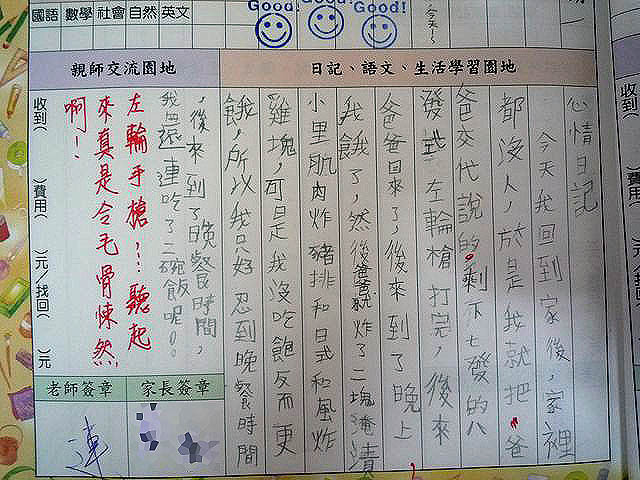 國語 數學 社會 自然 英文
Good
Good!
Good!
今天~
日記、語文、生活學習園地
親師交流園地
心情日記
今天我回到家後,家裡
都沒人,於是我就把爸
爸交代說的剩下七發的八
發式左輪槍打完,後來
爸爸回來了,後來到了晚上
我餓了,然後爸爸就炸了二塊醃漬
小里肌肉炸豬排和日式和風炸
雞塊,可是我沒吃飽反而更
餓,所以我只好忍到晚餐時間
,後來到了晚餐時間,
我還連吃了二碗飯呢。
左輪手槍…聽起
來真是令毛骨悚然
啊!
收到( )費用( )元/找回( )元
家長簽章
老師簽章
連
收到(
)費用